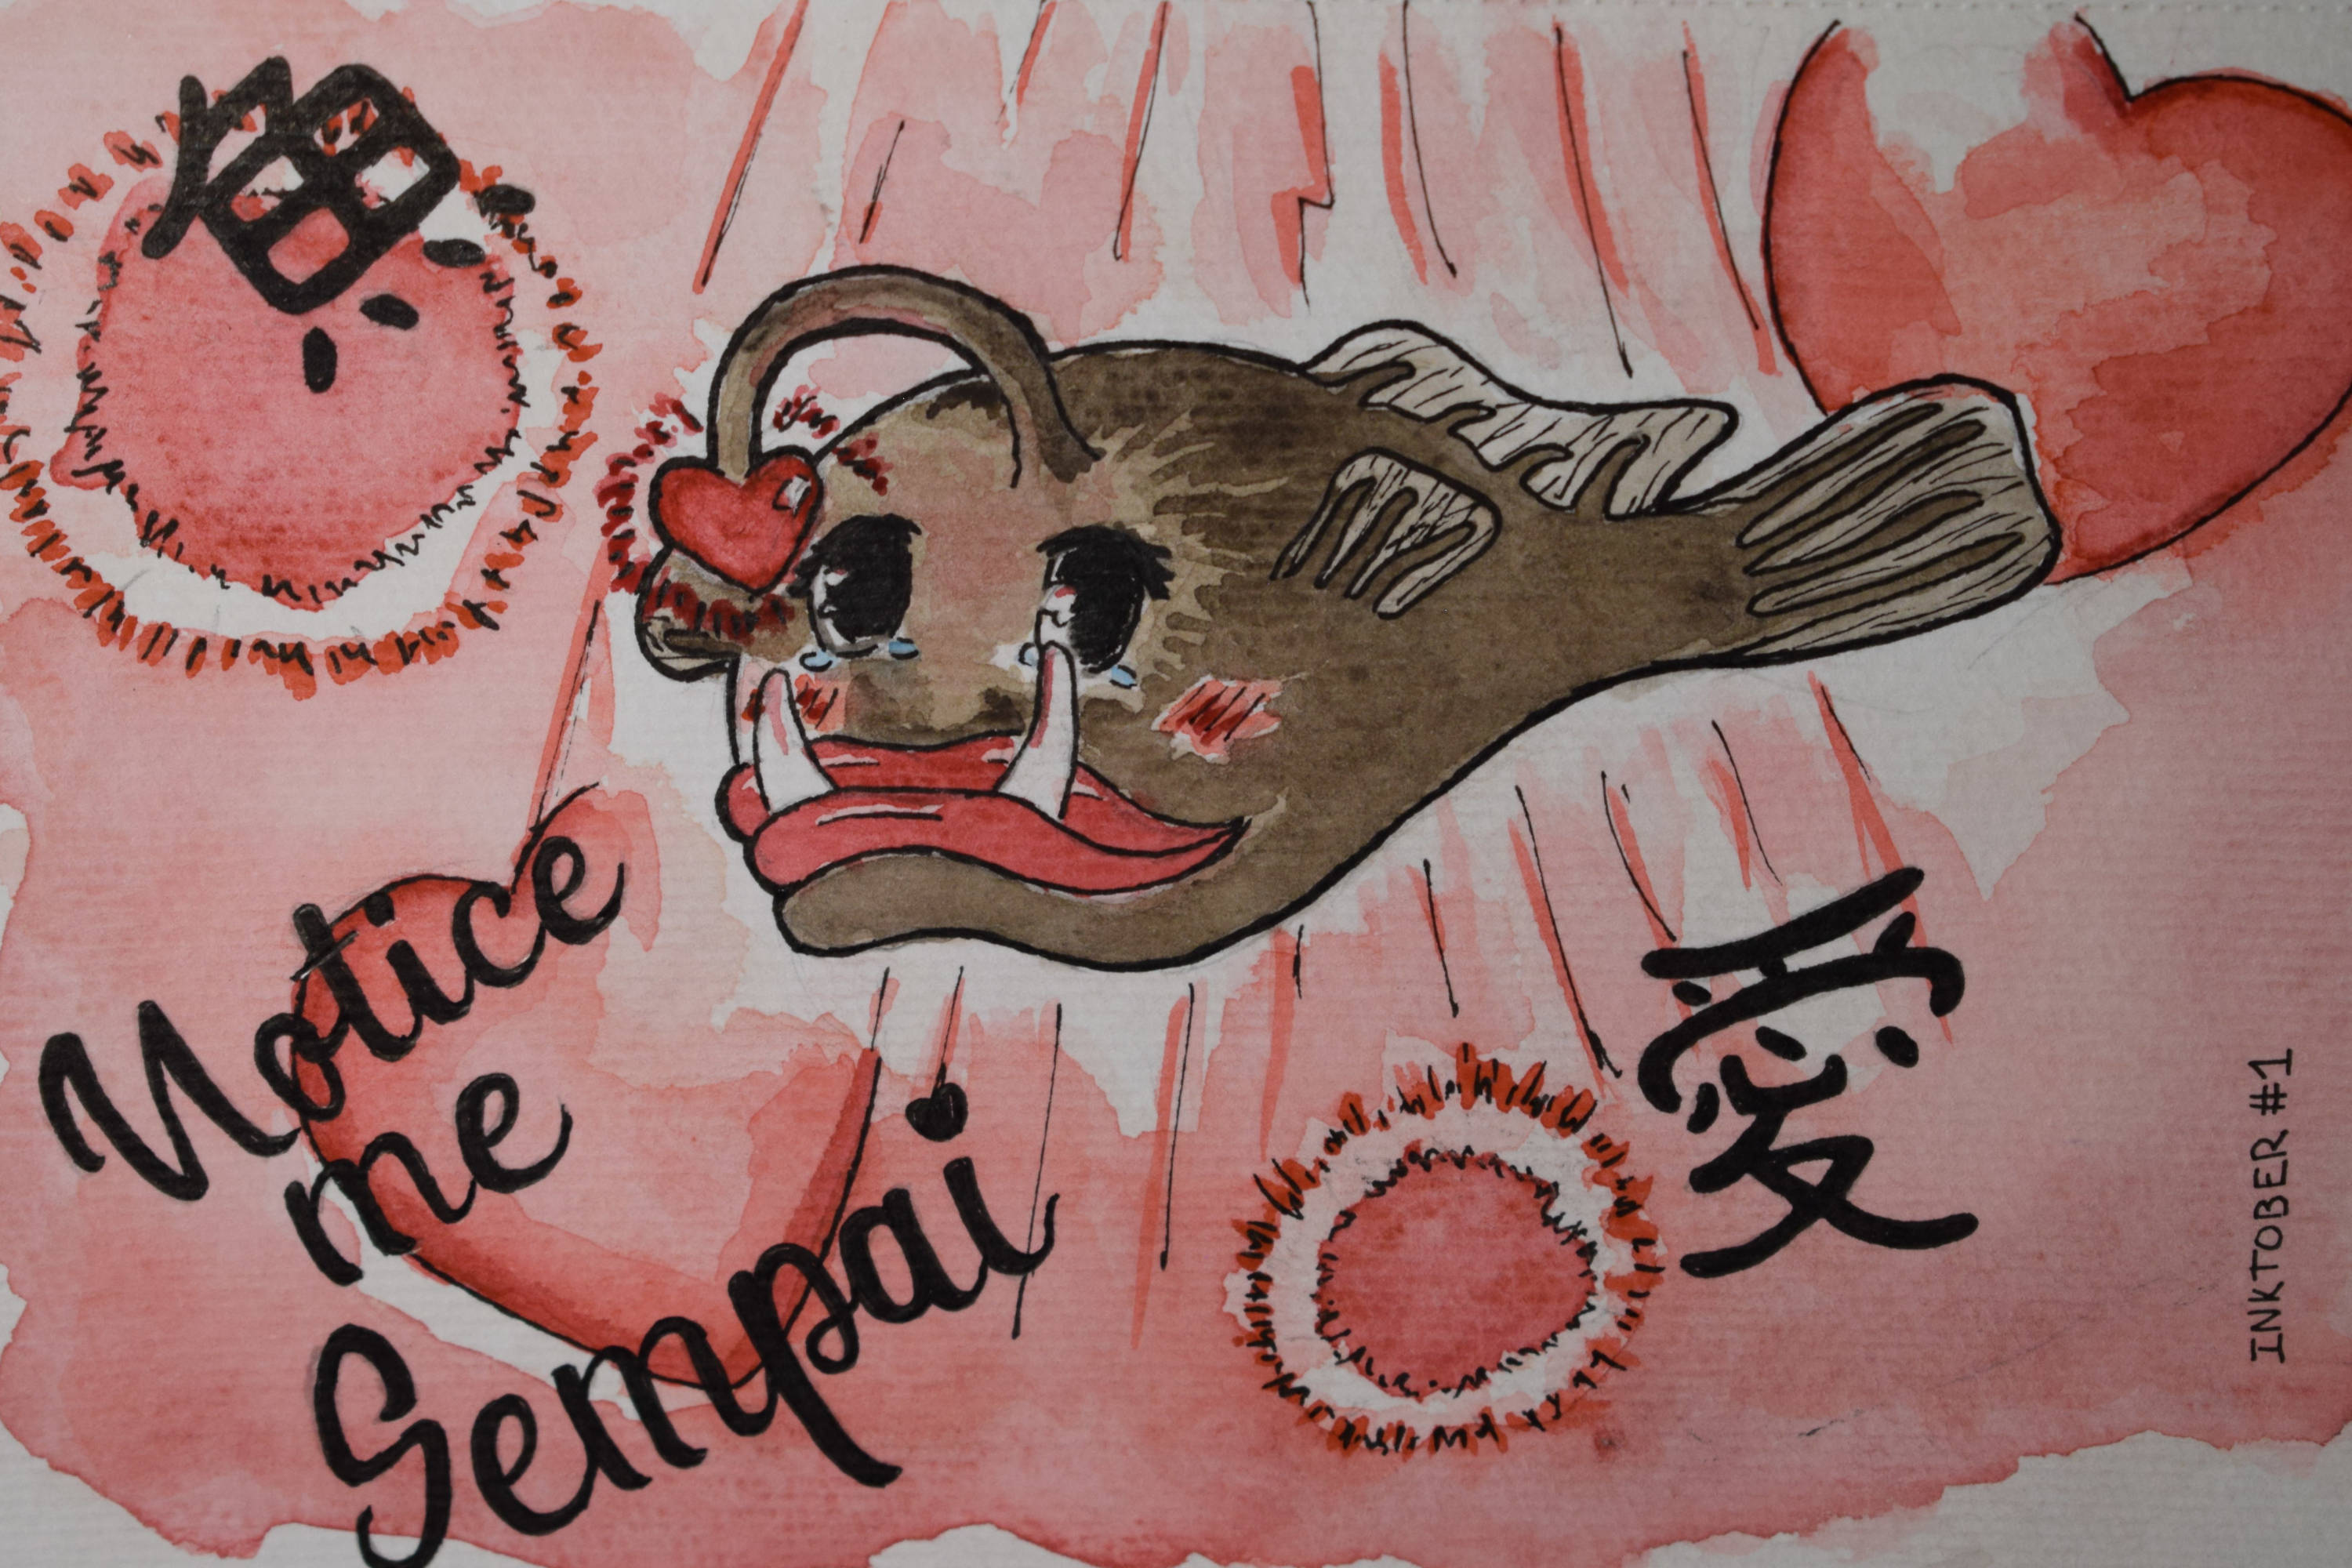 魚
Notice
me
Sempai
愛
INKTOBER #1